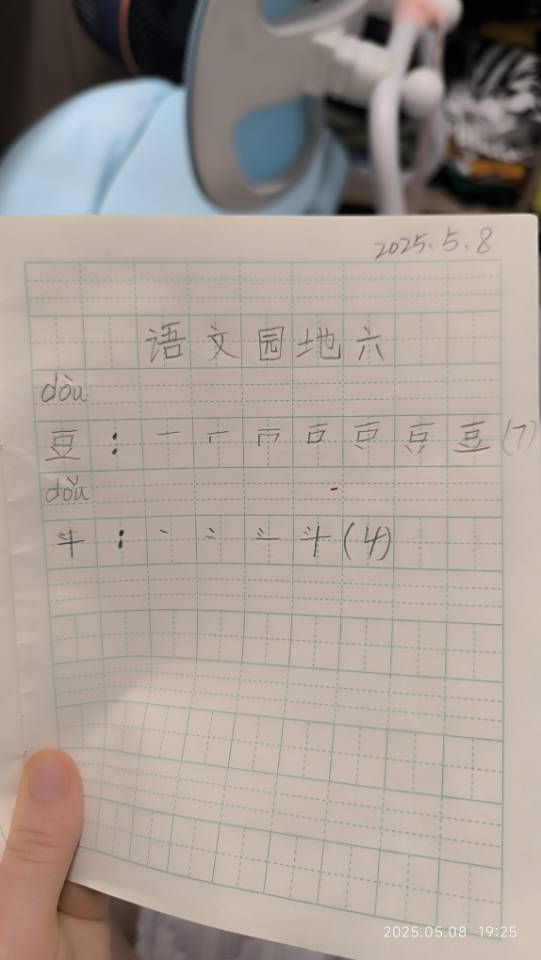 2025.5.8
语文园地六
dòu
豆：一 丆 豆 (7)
dǒu
斗：丶 斗 (4)
2025.05.08 19:25